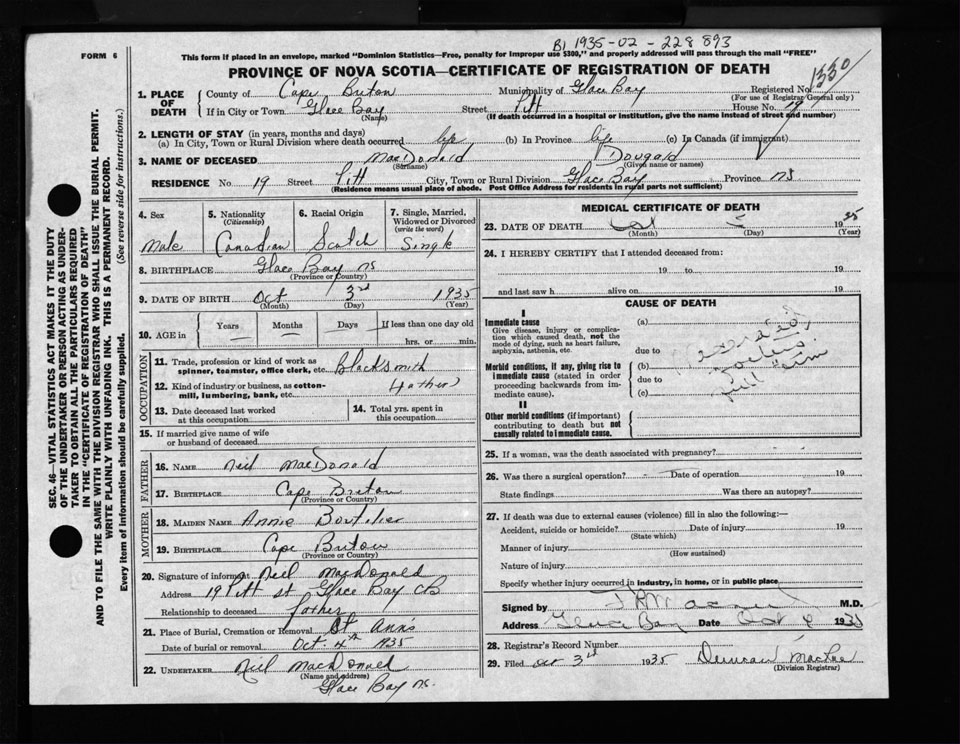 B1 1935-02-228893
FORM 6
This form if placed in an envelope, marked "Dominion Statistics—Free, penalty for improper use $300," and properly addressed will pass through the mail "FREE"
PROVINCE OF NOVA SCOTIA—CERTIFICATE OF REGISTRATION OF DEATH
1330
1. PLACE OF DEATH
County of Cape Breton Municipality of Glace Bay Registered No.
(For use of Registrar General only)
If in City or Town Glace Bay Street Pitt House No. 19
(Name) (If death occurred in a hospital or institution, give the name instead of street and number)
2. LENGTH OF STAY (in years, months and days)
(a) In City, Town or Rural Division where death occurred life (b) In Province life (c) In Canada (if immigrant)
3. NAME OF DECEASED MacDonald Dougald
(Surname) (Given name or names)
RESIDENCE No 19 Street Pitt City, Town or Rural Division Glace Bay Province NS
(Residence means usual place of abode. Post Office Address for residents in rural parts not sufficient)
SEC. 46—VITAL STATISTICS ACT MAKES IT THE DUTY
OF THE UNDERTAKER OR PERSON ACTING AS UNDER-
TAKER TO OBTAIN ALL THE PARTICULARS REQUIRED
IN THE "CERTIFICATE OF REGISTRATION OF DEATH"
AND TO FILE THE SAME WITH THE DIVISION REGISTRAR WHO SHALL ISSUE THE BURIAL PERMIT.
WRITE PLAINLY WITH UNFADING INK. THIS IS A PERMANENT RECORD.
Every item of information should be carefully supplied. (See reverse side for instructions.)
4. Sex
Male
5. Nationality
(Citizenship)
Canadian
6. Racial Origin
Scotch
7. Single, Married,
Widowed or Divorced
(write the word)
Single
8. BIRTHPLACE Glace Bay NS
(Province or Country)
9. DATE OF BIRTH Oct 3rd 1935
(Month) (Day) (Year)
10. AGE in
Years Months Days If less than one day old
hrs. or min.
OCCUPATION
11. Trade, profession or kind of work as
spinner, teamster, office clerk, etc. Blacksmith
12. Kind of industry or business, as cotton-
mill, lumbering, bank, etc. (father)
13. Date deceased last worked
at this occupation
14. Total yrs. spent in
this occupation
15. If married give name of wife
or husband of deceased
FATHER
16. NAME Neil MacDonald
17. BIRTHPLACE Cape Breton
(Province or Country)
MOTHER
18. MAIDEN NAME Annie Boutilier
19. BIRTHPLACE Cape Breton
(Province or Country)
20. Signature of informant Neil MacDonald
Address 19 Pitt st Glace Bay CB
Relationship to deceased father
21. Place of Burial, Cremation or Removal St Anns
Date of burial or removal Oct. 4th 1935
22. UNDERTAKER Neil MacDonald
(Name and address)
Glace Bay NS.
MEDICAL CERTIFICATE OF DEATH
23. DATE OF DEATH Oct 1935
(Month) (Day) (Year)
24. I HEREBY CERTIFY that I attended deceased from:
19 to 19
and last saw h alive on 19
CAUSE OF DEATH
I
Immediate cause
Give disease, injury or complica-
tion which caused death, not the
mode of dying, such as heart failure,
asphyxia, asthenia, etc.
(a)
due to
Morbid conditions, if any, giving rise to
immediate cause (stated in order
proceeding backwards from im-
mediate cause).
(b)
due to
(c)
II
Other morbid conditions (if important)
contributing to death but not
causally related to immediate cause.
25. If a woman, was the death associated with pregnancy?
26. Was there a surgical operation? Date of operation 19
State findings Was there an autopsy?
27. If death was due to external causes (violence) fill in also the following:—
Accident, suicide or homicide? Date of injury 19
(State which)
Manner of injury
(How sustained)
Nature of injury
Specify whether injury occurred in industry, in home, or in public place
Signed by M.D.
Address Glace Bay Date Oct 1935
28. Registrar's Record Number
29. Filed Oct 3rd 1935 Duncan MacRae
(Division Registrar)